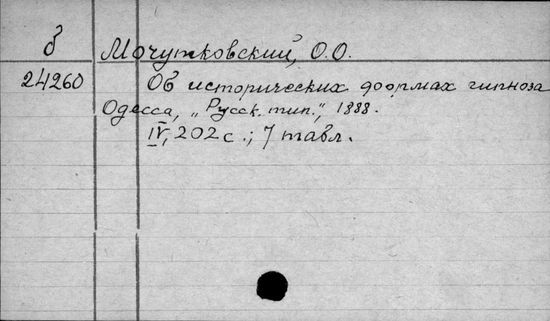 б Мочутковский, О.О.
24260 Об исторических формах гипноза
Одесса, „Русск. тип.", 1888.
IV, 202 с.; 7 табл.